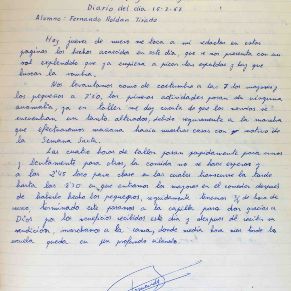 Diario del día 15-2-67
Alumno: Fernando Roldan Tirado
Hoy jueves de nuevo me toca a mi redactar en estas
paginas los hechos acaecidos en este día, que se nos presenta con un
sol esplendido que ya empieza a picar las espaldas y hay que
buscar la sombra.
Nos levantamos como de costumbre a las 7 los mayores,
los pequeños a 7'30, las primeras actividades pasan sin ninguna
anomalia, ya en taller me doy cuenta de que los nervios se
encuentran un tanto alterados, debido seguramente a la marcha
que efectuaremos mañana hacia nuestras casas con motivo de
la Semana Santa.
Las cuatro horas de taller pasan rapidamente para unos
y lentamente para otros, la comida no se hace esperar y
a las 2'45 toca para clase en las cuales transcurre la tarde
hasta las 8'30 en que entramos los mayores en el comedor despues
de haberlo hecho los pequeños, seguidamente tenemos 3/4 de hora de
recreo terminado este pasamos a la capilla para dar gracias a
Dios por los beneficios recibidos este día y despues de recibir su
bendición, marchamos a la cama, donde media hora mas tarde la
escuela queda en un profundo silencio.